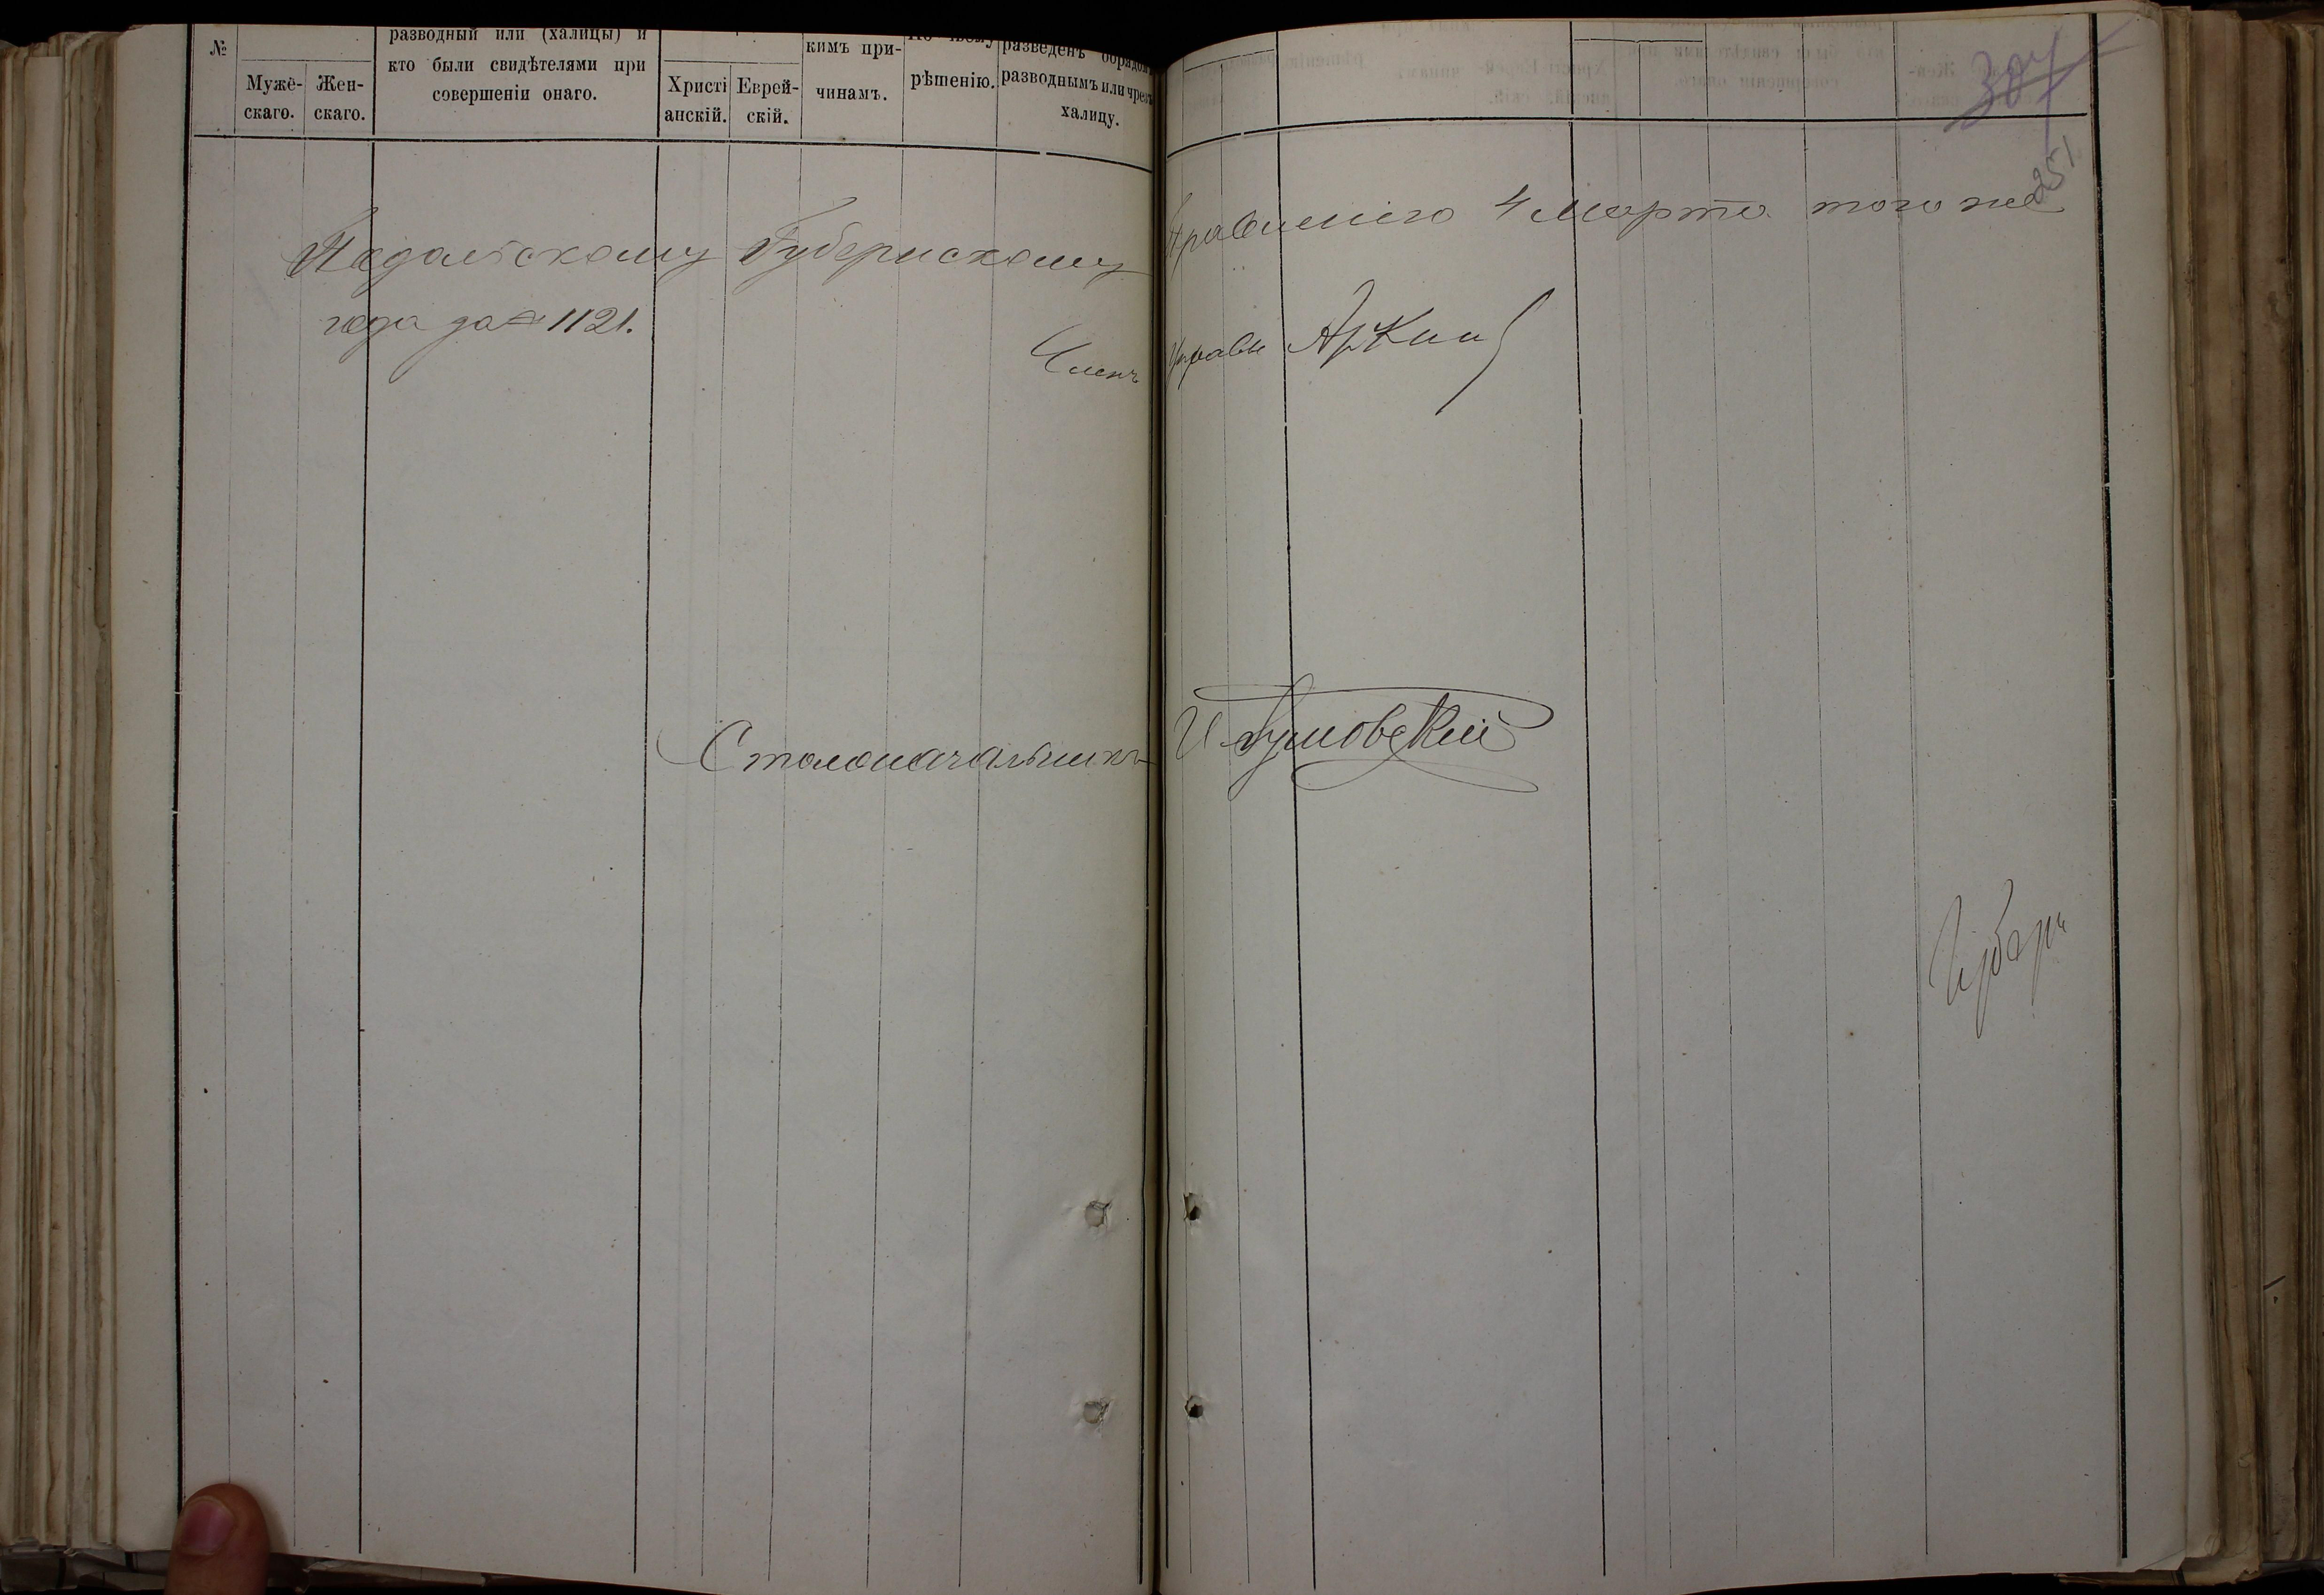 №
Муже-
скаго.
Жен-
скаго.
разводный или (халицы) и
кто были свидѣтелями при
совершеніи онаго.
Христі
анскій.
Еврей-
скій.
кимъ при-
чинамъ.
рѣшенію.
разведенъ обрядомъ
разводнымъ или чрезъ
халицу.
251
Подольскому Губернскому Правленію 4 Марта того же
года за № 1121.
Членъ Управы Аркин
Столоначальникъ